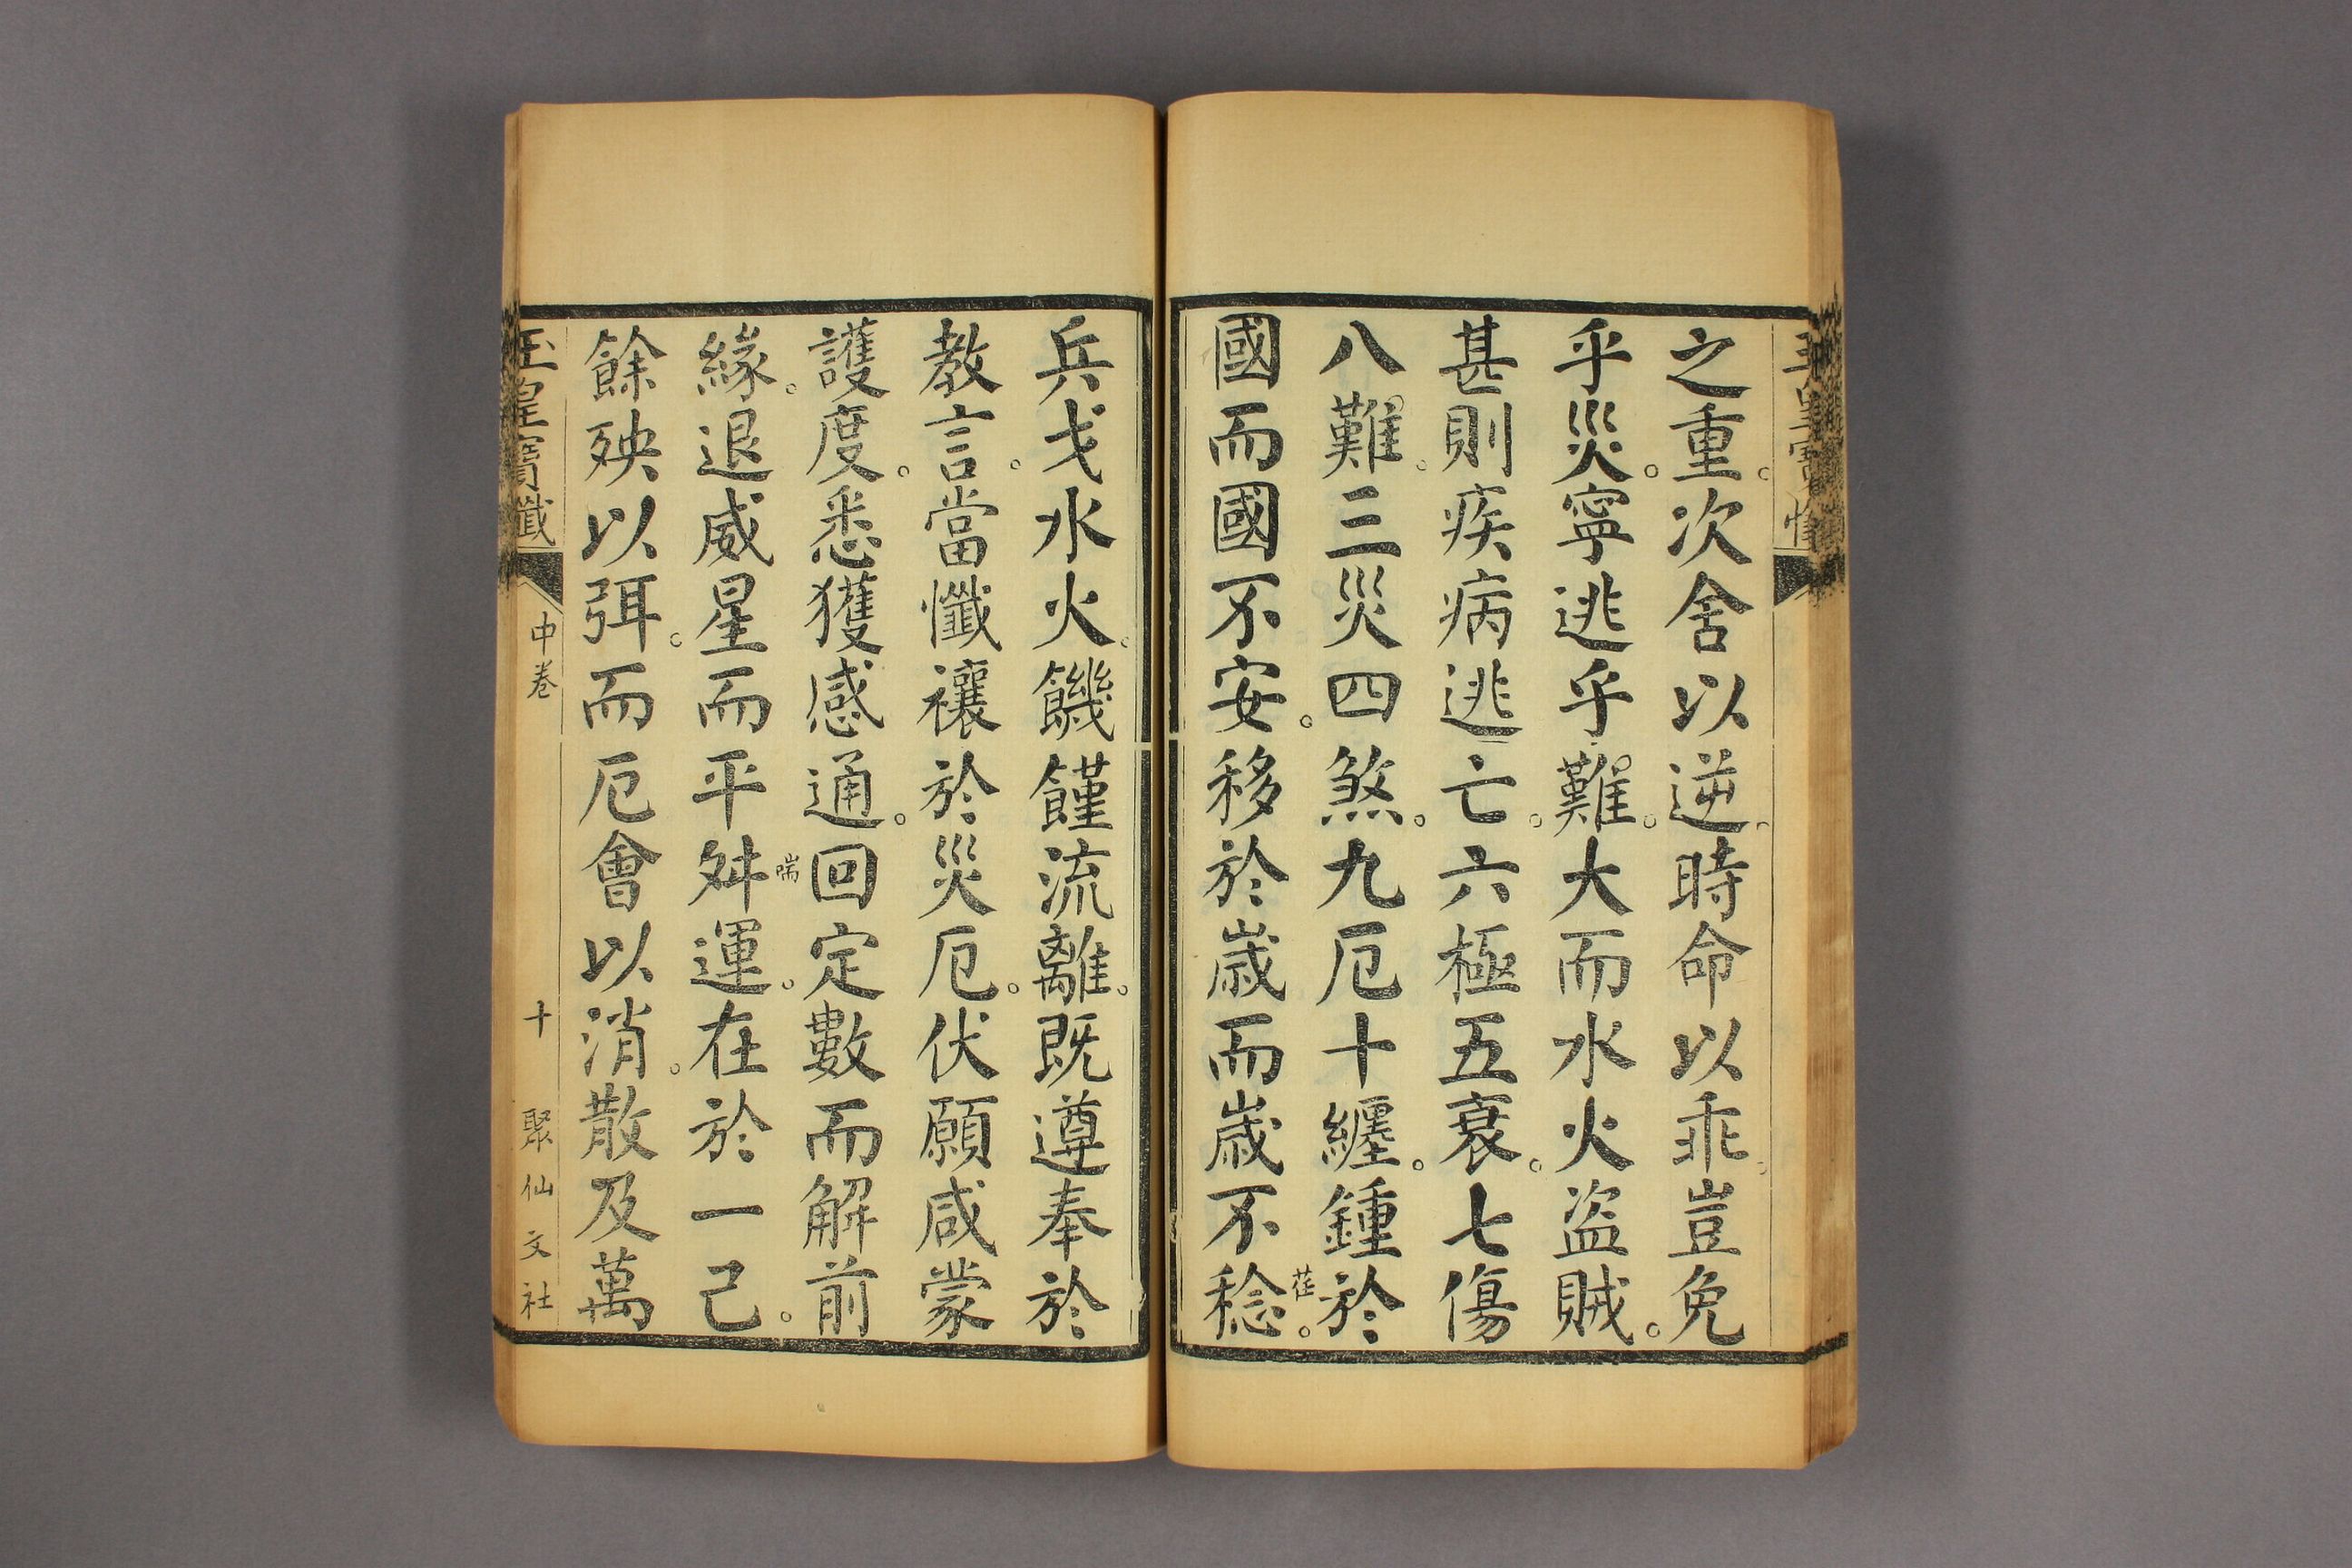 之重。次舍以逆。時命以乖。豈免
乎災。寧逃乎難。大而水火盜賊。
甚則疾病逃亡。六極五衰。七傷
八難。三災四煞。九厄十纏。鍾於
國而國不安。移於歲而歲不稔。
荏
兵戈水火。饑饉流離。既遵奉於
教言。當懺禳於災厄。伏願咸蒙
護度。悉獲感通。回定數而解前
緣。退威星而平舛運。在於一己。
喘
餘殃以弭。而厄會以消。散及萬
玉皇寶懺
中卷
十
聚仙文社